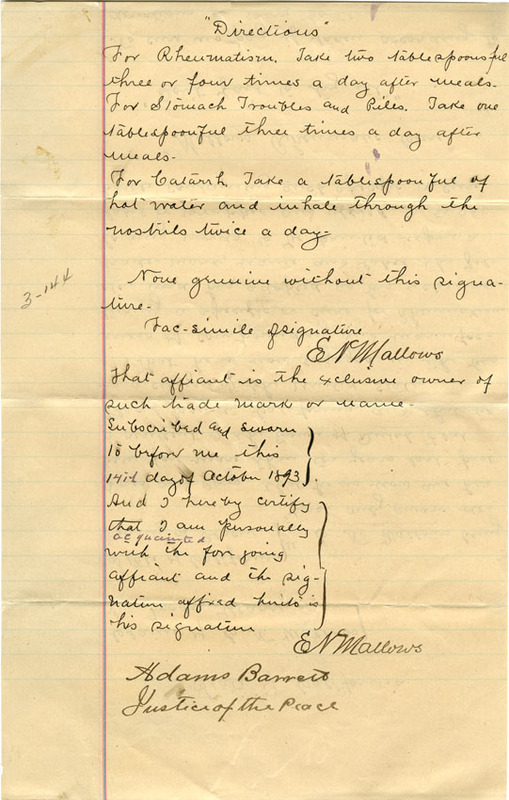 "Directions"
For Rheumatism. Take two tablespoonsful
three or four times a day after meals.
For Stomach Troubles and Piles. Take one
tablespoonful three times a day after
meals.
For Catarrh. Take a tablespoonful of
hot water and inhale through the
nostrils twice a day.
3-144
None genuine without this signa-
ture.
Fac-simile of signature
E N Mallows
That affiant is the exclusive owner of
such trade mark or name.
Subscribed and sworn
to before me this
14th day of October 1893.
And I hereby certify
that I am personally
acquainted
with the foregoing
affiant and the sig-
nature affixed hereto is
his signature
E N Mallows
Adams Barrett
Justice of the Peace